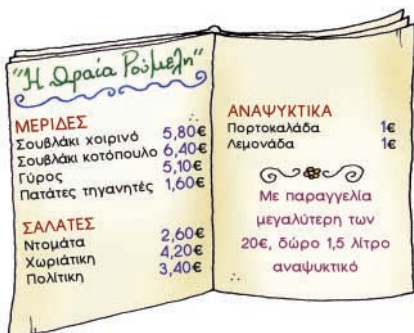 "Η Ωραία Ρούμελη"
ΜΕΡΙΔΕΣ
Σουβλάκι χοιρινό 5,80€
Σουβλάκι κοτόπουλο 6,40€
Γύρος 5,10€
Πατάτες τηγανητές 1,60€
ΣΑΛΑΤΕΣ
Ντομάτα 2,60€
Χωριάτικη 4,20€
Πολίτικη 3,40€
ΑΝΑΨΥΚΤΙΚΑ
Πορτοκαλάδα 1€
Λεμονάδα 1€
Με παραγγελία
μεγαλύτερη των
20€, δώρο 1,5 λίτρο
αναψυκτικό